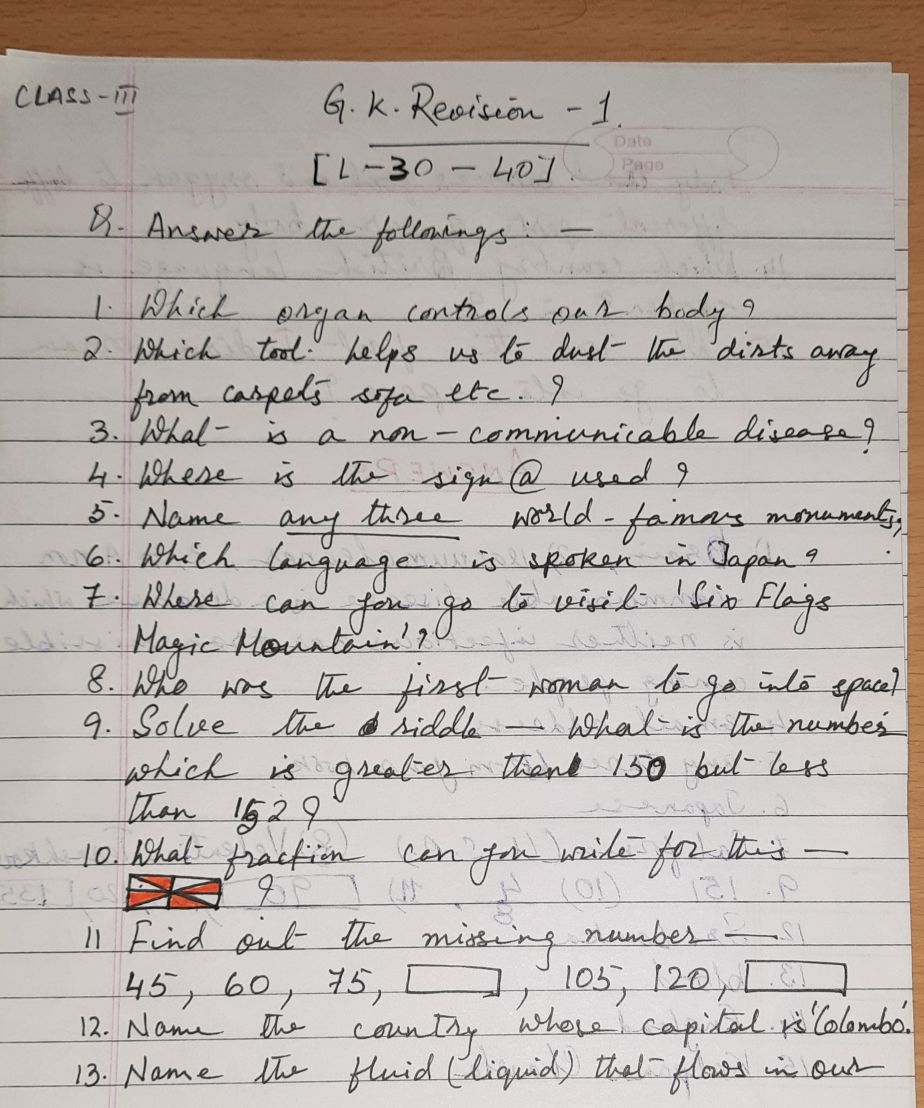 CLASS-III
G.K. Revision - 1.
Date
Page
[L-30 - 40].
Q. Answer the followings: —
1. Which organ controls our body?
2. Which tool helps us to dust the dirts away
from carpets sofa etc.?
3. What is a non-communicable disease?
4. Where is the sign @ used?
5. Name any three world-famous monuments,
6. Which language is spoken in Japan?
7. Where can you go to visit 'Six Flags
Magic Mountain'?
8. Who was the first woman to go into space?
9. Solve the riddle — What is the number
which is greater than 150 but less
than 152?
10. What fraction can you write for this —
?
11 Find out the missing number —
45, 60, 75, , 105, 120,
12. Name the country whose capital is 'Colombo'.
13. Name the fluid (liquid) that flows in our